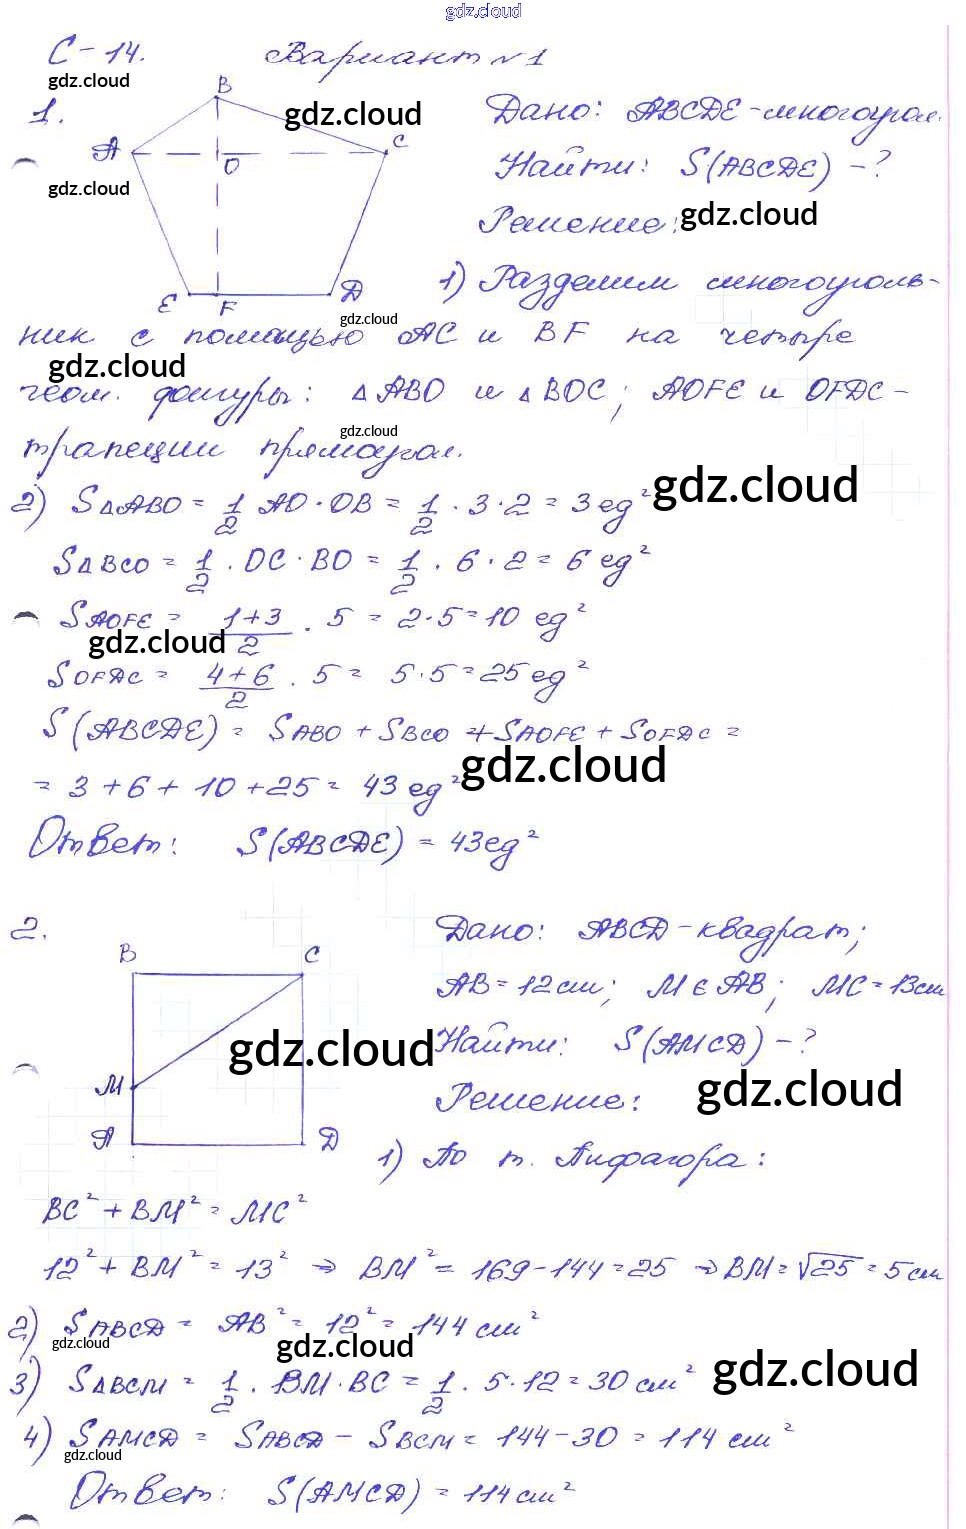 gdz.cloud
С-14. Вариант №1
gdz.cloud
1.
B
gdz.cloud
Дано: ABCDE-многоугол.
A
C
O
Найти: S(ABCDE) -?
gdz.cloud
Решение:
gdz.cloud
1) Разделим многоуголь-
E
F
D
gdz.cloud
ник с помощью AC и BF на четыре
gdz.cloud
геом. фигуры: △ABO и △BOC; AOFE и OFDC-
gdz.cloud
трапеции прямоугол.
2) S△ABO = 1/2 AO·OB = 1/2 · 3·2 = 3 ед²
gdz.cloud
S△BCO = 1/2 · OC·BO = 1/2 · 6·2 = 6 ед²
SAOFE = (1+3)/2 · 5 = 2·5 = 10 ед²
gdz.cloud
SOFDC = (4+6)/2 · 5 = 5·5 = 25 ед²
S(ABCDE) = SABO + SBCO + SAOFE + SOFDC =
gdz.cloud
= 3+6+10+25 = 43 ед²
Ответ: S(ABCDE) = 43 ед²
2.
B
C
Дано: ABCD-квадрат;
AB = 12 см; M ∈ AB; MC = 13 см
gdz.cloud
Найти: S(AMCD) -?
M
gdz.cloud
Решение:
A
D
1) По т. Пифагора:
BC² + BM² = MC²
12² + BM² = 13² ⇒ BM² = 169-144 = 25 ⇒ BM = √25 = 5 см
2) SABCD = AB² = 12² = 144 см²
gdz.cloud
gdz.cloud
gdz.cloud
3) S△BCM = 1/2 · BM·BC = 1/2 · 5·12 = 30 см²
4) SAMCD = SABCD - SBCM = 144-30 = 114 см²
gdz.cloud
Ответ: S(AMCD) = 114 см²